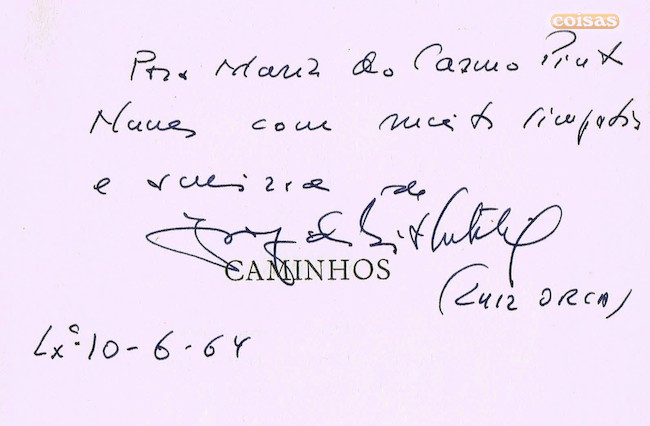 coisas
Para Maria do Carmo Pinto
Nunes com muita simpatia
e amizade de
CAMINHOS
(LUIZ ORCA)
Lxª. 10-6-64